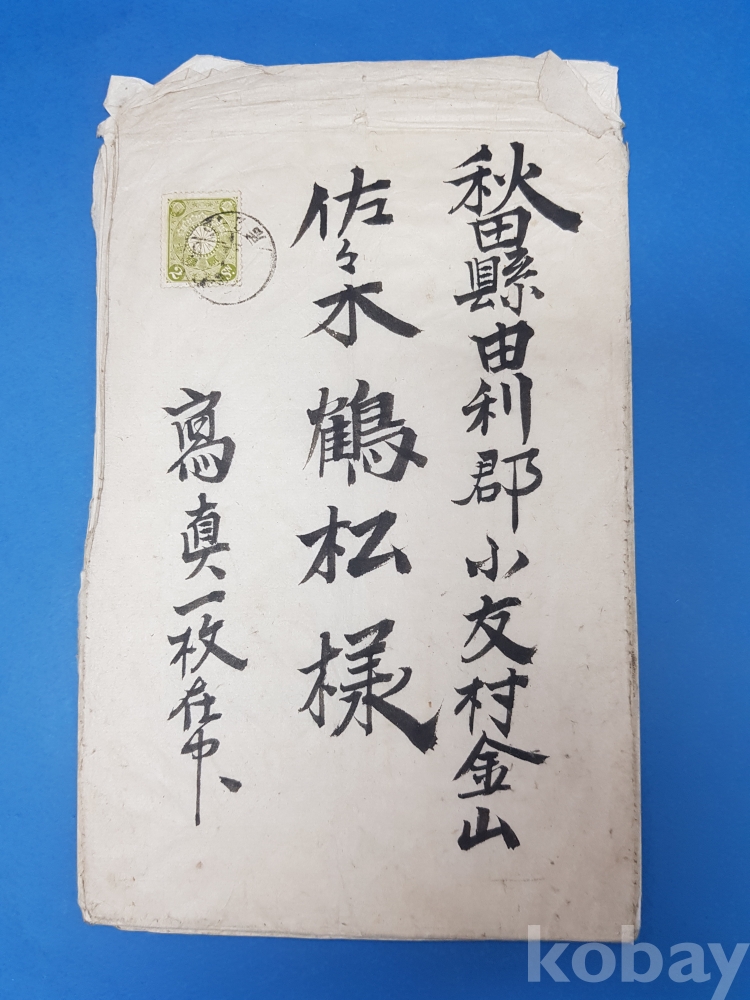 秋田縣由利郡小友村金山
佐々木鶴松様
寫真一枚在中、
kobay